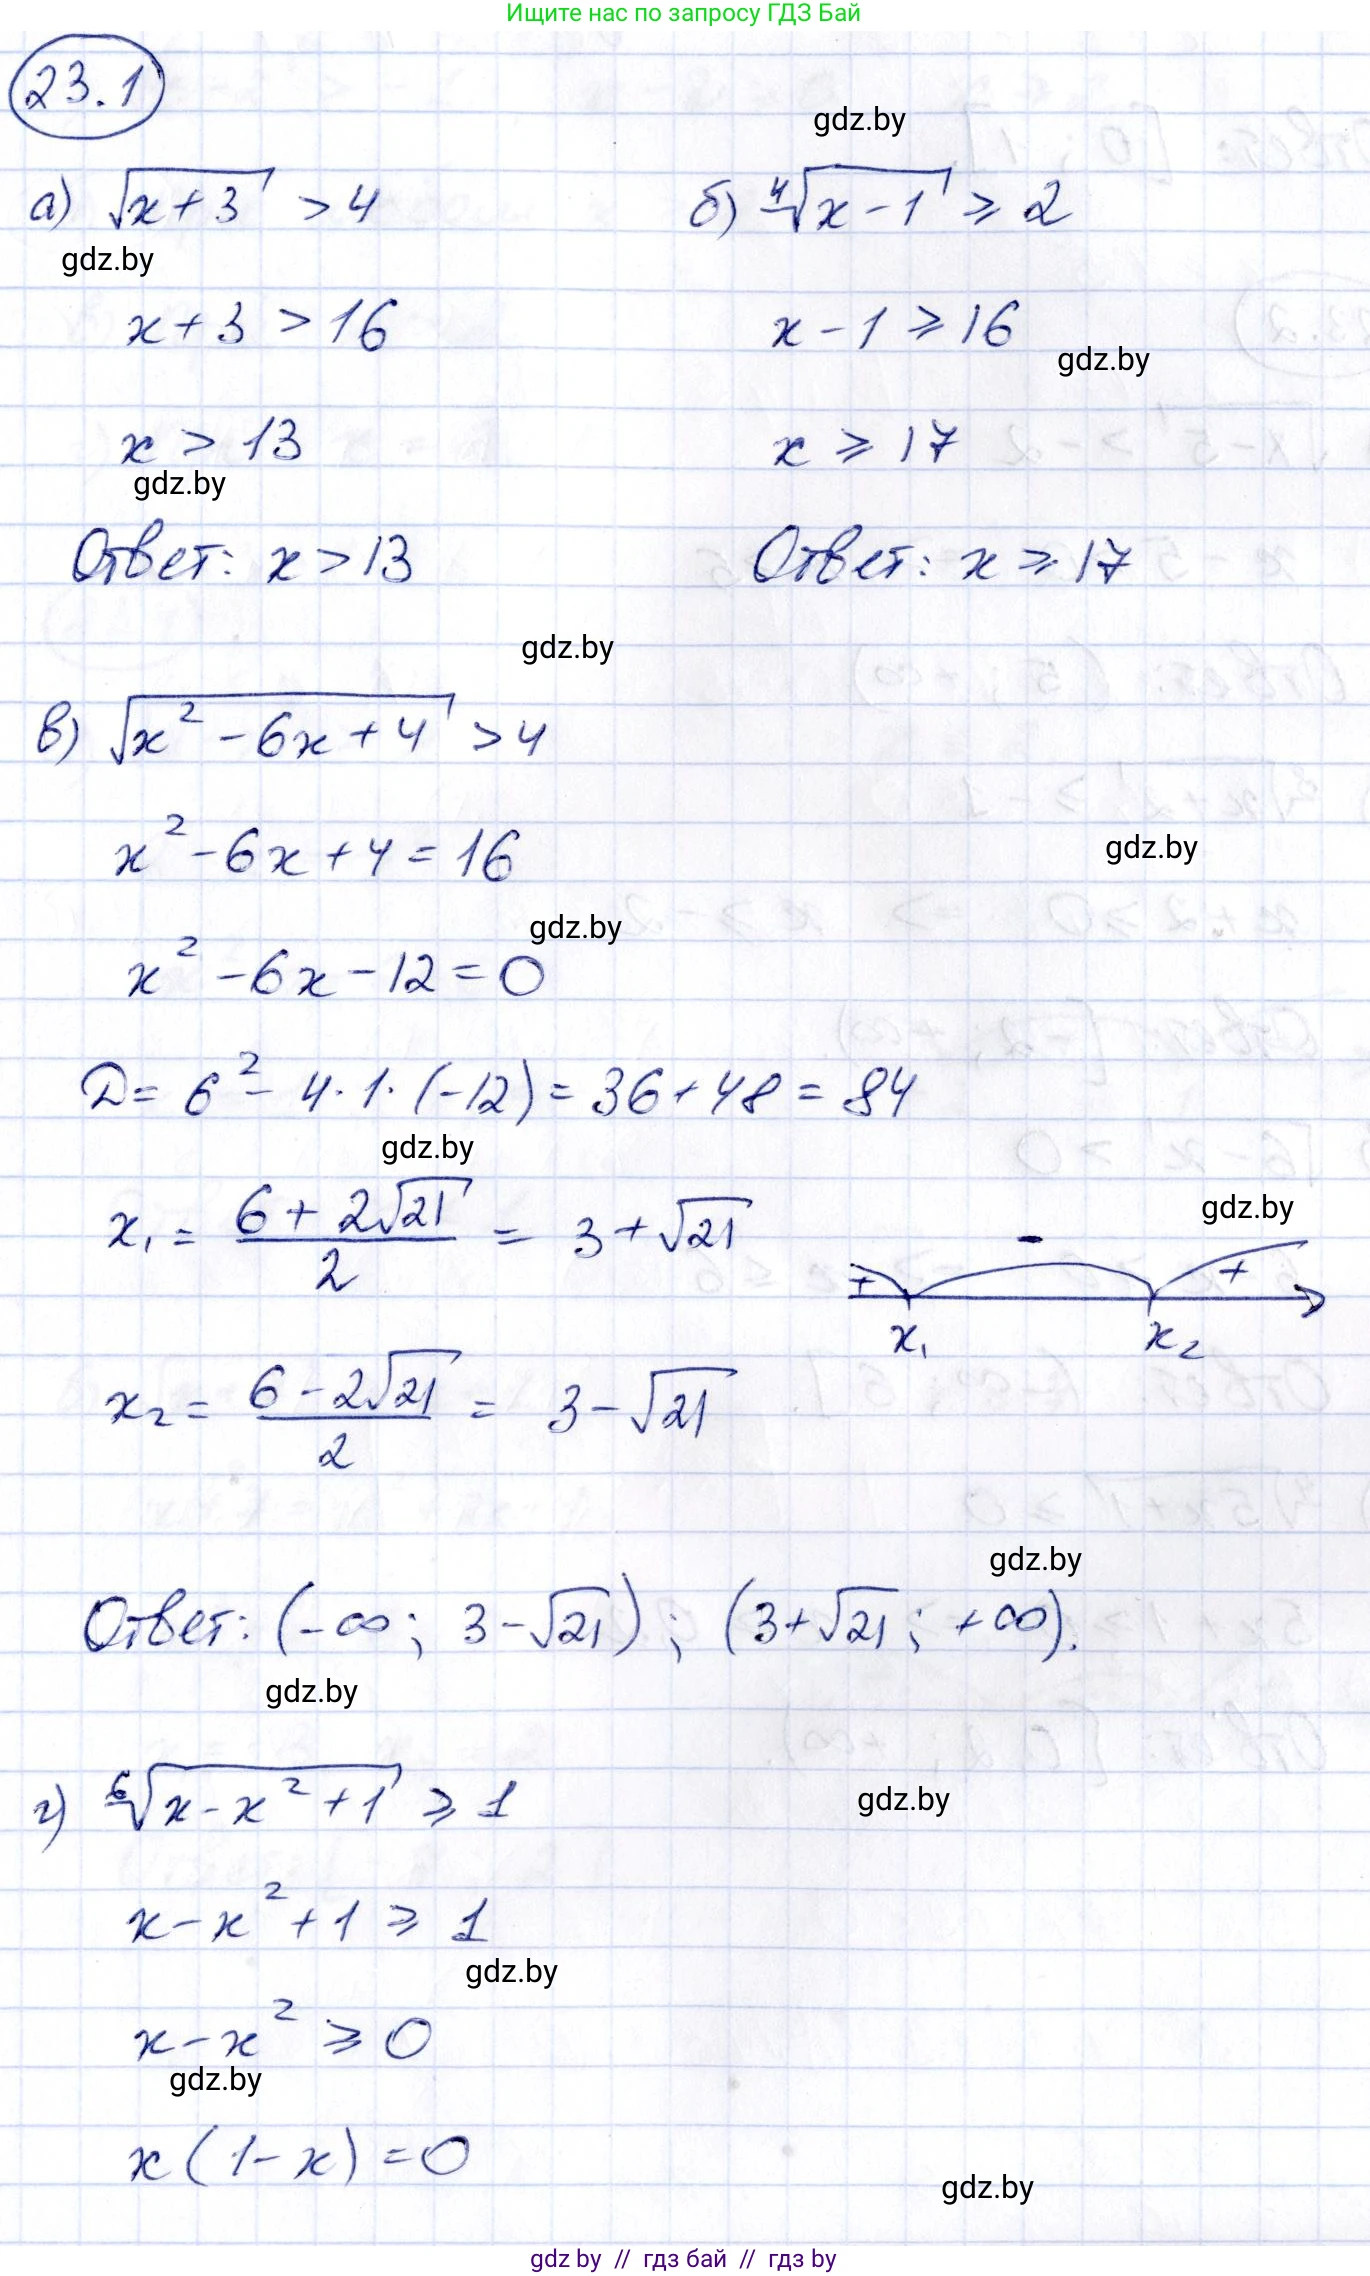 Ищите нас по запросу ГДЗ Бай
23.1
gdz.by
а) √(x+3) > 4
б) ⁴√(x-1) ⩾ 2
gdz.by
x+3 > 16
x-1 ⩾ 16
gdz.by
x > 13
x ⩾ 17
gdz.by
Ответ: x > 13
Ответ: x ⩾ 17
gdz.by
в) √(x²-6x+4) > 4
x²-6x+4 = 16
gdz.by
gdz.by
x²-6x-12 = 0
D = 6² - 4·1·(-12) = 36+48 = 84
gdz.by
x₁ = (6+2√21)/2 = 3+√21
gdz.by
+ - +
x₁ x₂
x₂ = (6-2√21)/2 = 3-√21
gdz.by
Ответ: (-∞; 3-√21); (3+√21; +∞).
gdz.by
г) ⁶√(x-x²+1) ⩾ 1
gdz.by
x-x²+1 ⩾ 1
gdz.by
x-x² ⩾ 0
gdz.by
x(1-x) = 0
gdz.by
gdz by // гдз бай // гдз by